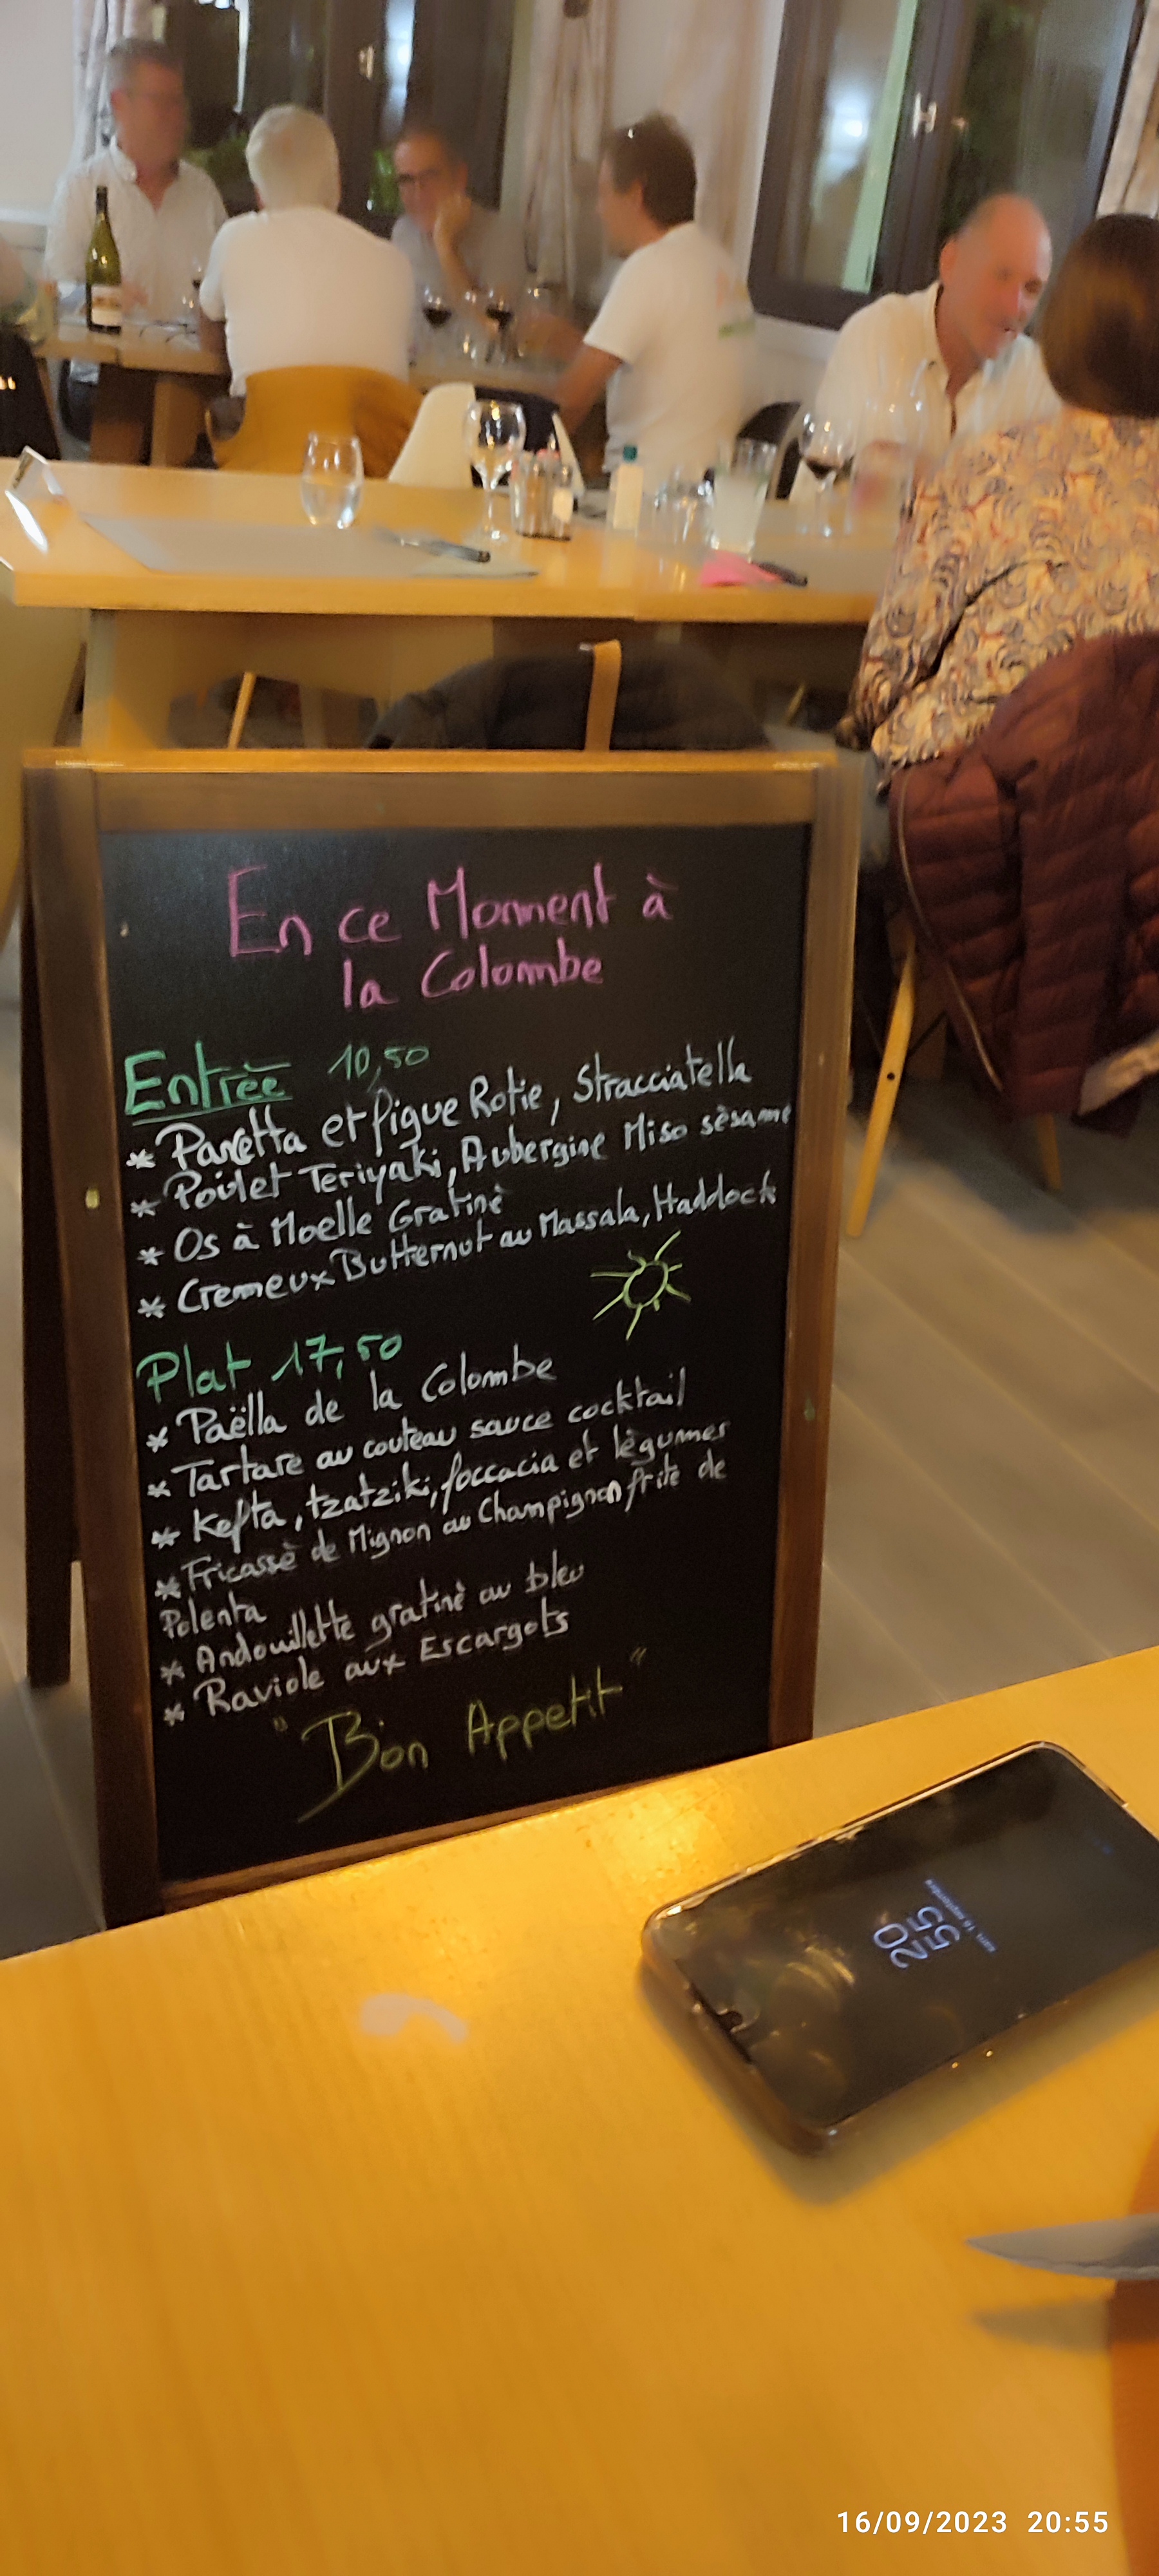 En ce Moment à
la Colombe
Entrée 10,50
* Pancetta et figue Rotie, Stracciatella
* Poulet Teriyaki, Aubergine Miso sèsame
* Os à Moelle Gratinè
* Cremeux Butternut au Massala, Haddock
Plat 17,50
* Paëlla de la Colombe
* Tartare au couteau sauce cocktail
* Kefta, tzatziki, foccacia et lègumes
* Fricassè de Mignon au Champignon frite de
Polenta
* Andouillette gratinè au bleu
* Raviole aux Escargots
"Bon Appetit"
20
55
sam. 16 septembre
16/09/2023 20:55